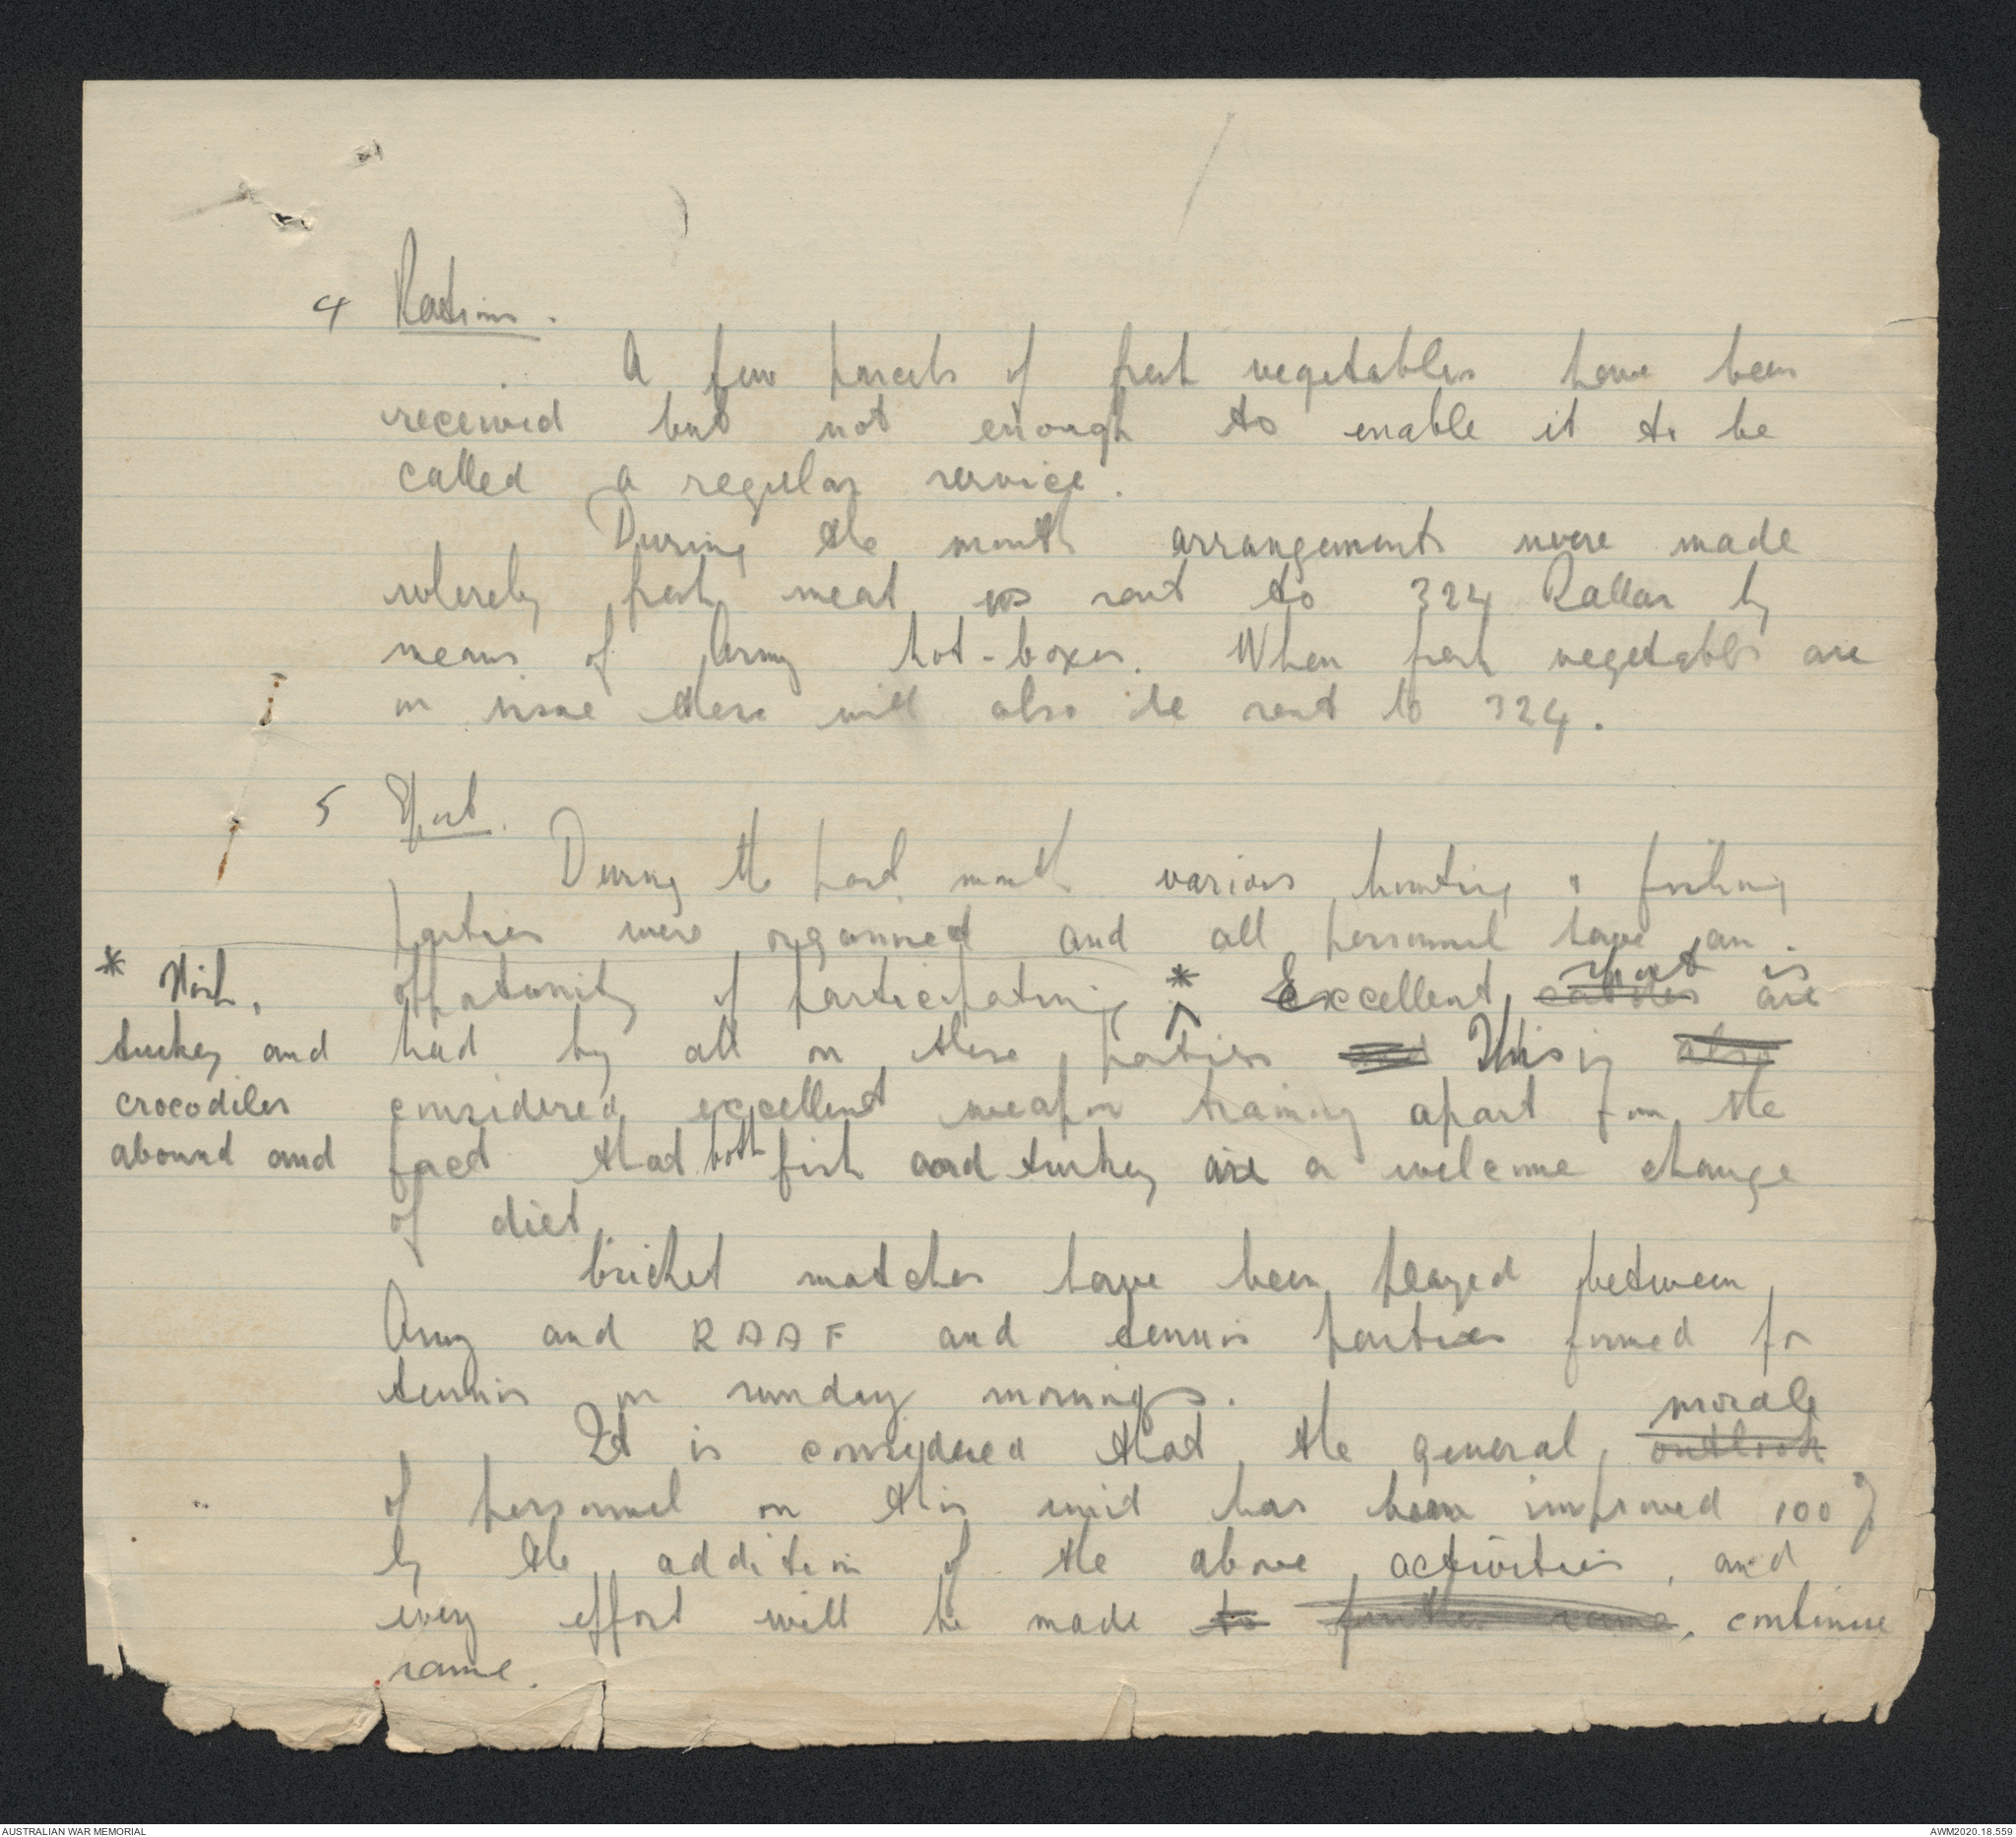 4 Rations.
A few parcels of fresh vegetables have been
received but not enough to enable it to be
called a regular service.
During the month arrangements were made
whereby fresh meat is sent to 324 Radar by
means of Army hot-boxes. When fresh vegetables are
on issue these will also be sent to 324.
5 Sport.
During the past month various hunting & fishing
parties were organised and all personnel have an
opportunity of participating * Excellent catches sport are is
* Fish,
turkey and
crocodiles
abound and
had by all on these parties and This is also
considered excellent weapon training apart from the
fact that both fish and turkey are a welcome change
of diet.
Cricket matches have been played between
Army and RAAF and tennis parties formed for
tennis on sunday mornings.
It is considered that the general outlook morale
of personnel on this unit has been improved 100%
by the addition of the above activities, and
every effort will be made to further same, continue
same.
AUSTRALIAN WAR MEMORIAL
AWM2020.18.559